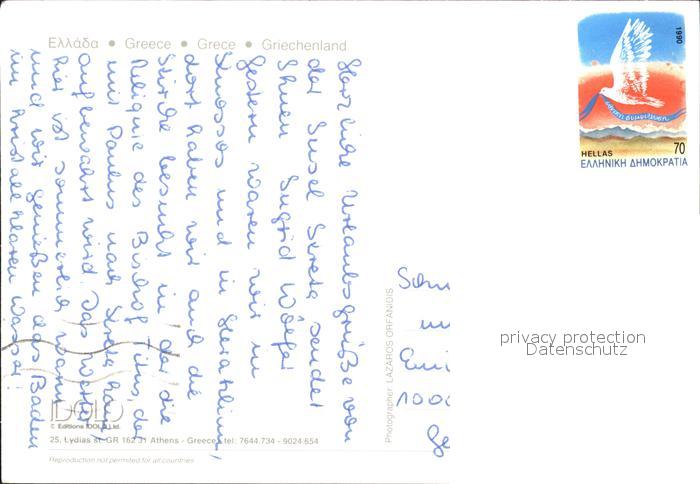 Ελλάδα • Greece • Grece • Griechenland
Herzliche Urlaubsgrüße von
der Insel Kreta sendet
Ihnen Ingrid
Gestern waren wir in
Knossos und in Heraklion,
dort haben wir auch die
Kirche besucht in der die
Reliquie des Bischof Titus, der
mit Paulus nach Kreta kam
aufbewahrt wird. Das Wetter
hier ist sommerlich warm
und wir genießen das Baden
im kristallklaren Wasser!
1990
HELLAS 70
ΕΛΛΗΝΙΚΗ ΔΗΜΟΚΡΑΤΙΑ
Photographer LAZAROS ORFANIDIS
1000
privacy protection
Datenschutz
IDOLO
© Editions IDOLO Ltd.
25, Lydias st. GR 162 31 Athens - Greece, tel: 7644.734 - 9024.654
Reproduction not permited for all countries